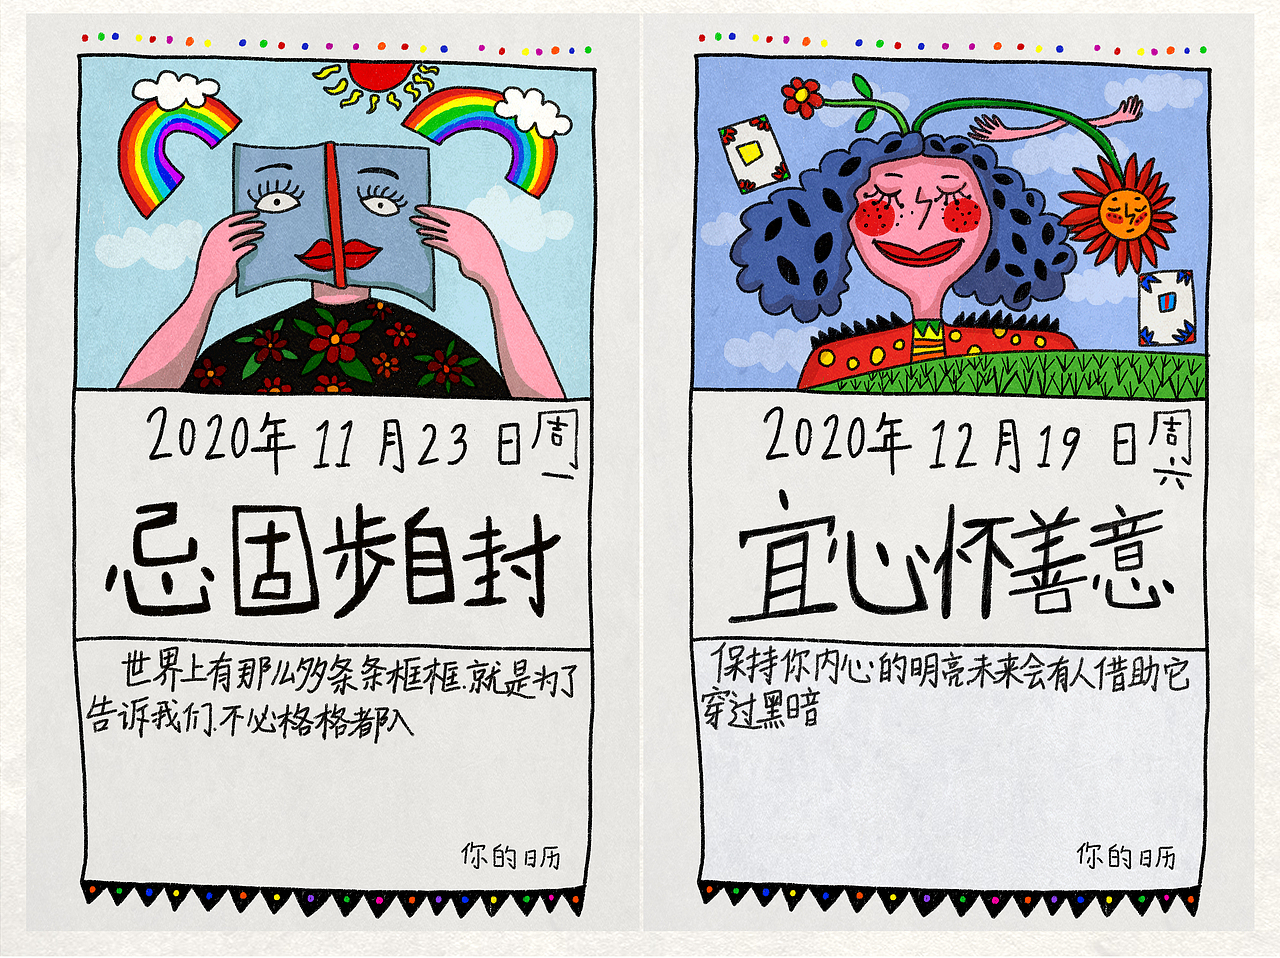 2020年 11月23日周一
忌固步自封
世界上有那么多条条框框.就是为了
告诉我们.不必格格都入
你的日历
2020年 12月19日周六
宜心怀善意
保持你内心的明亮.未来会有人借助它
穿过黑暗
你的日历